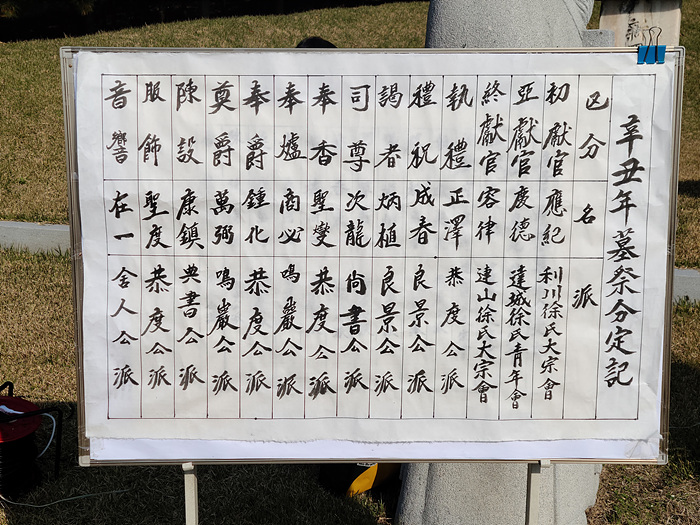 辛丑年墓祭分定記
区分 名 派
初獻官 應紀 利川徐氏大宗會
亞獻官 度德 達城徐氏青年會
終獻官 容律 連山徐氏大宗會
執禮 正澤 恭度公派
禮祝 成春 良景公派
謁者 炳植 良景公派
司尊 次龍 尙書公派
奉香 聖燮 恭度公派
奉爐 商必 鳴巖公派
奉爵 鍾化 恭度公派
奠爵 萬弼 鳴巖公派
陳設 康鎮 典書公派
服飾 聖度 恭度公派
音響 在一 舍人公派